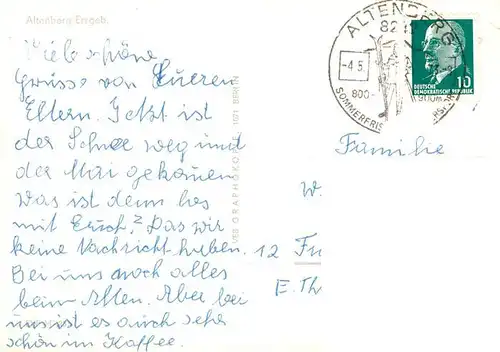 Altenberg Erzgeb.
Viele schöne
Grüsse von Eueren
Eltern. Jetzt ist
der Schnee weg und
der Mai gekommen
was ist denn los
mit Euch? Das wir
keine Nachricht haben.
Bei uns noch alles
beim Alten. Aber bei
uns ist es auch sehr
schön im Kaffee.
VEB GRAPHOKO BERLIN
ALTENBERG
82
-4.5.
800-
900m
SOMMERFRIS
DEUTSCHE
DEMOKRATISCHE REPUBLIK
10
Familie
W.
12 Fr
E. Th